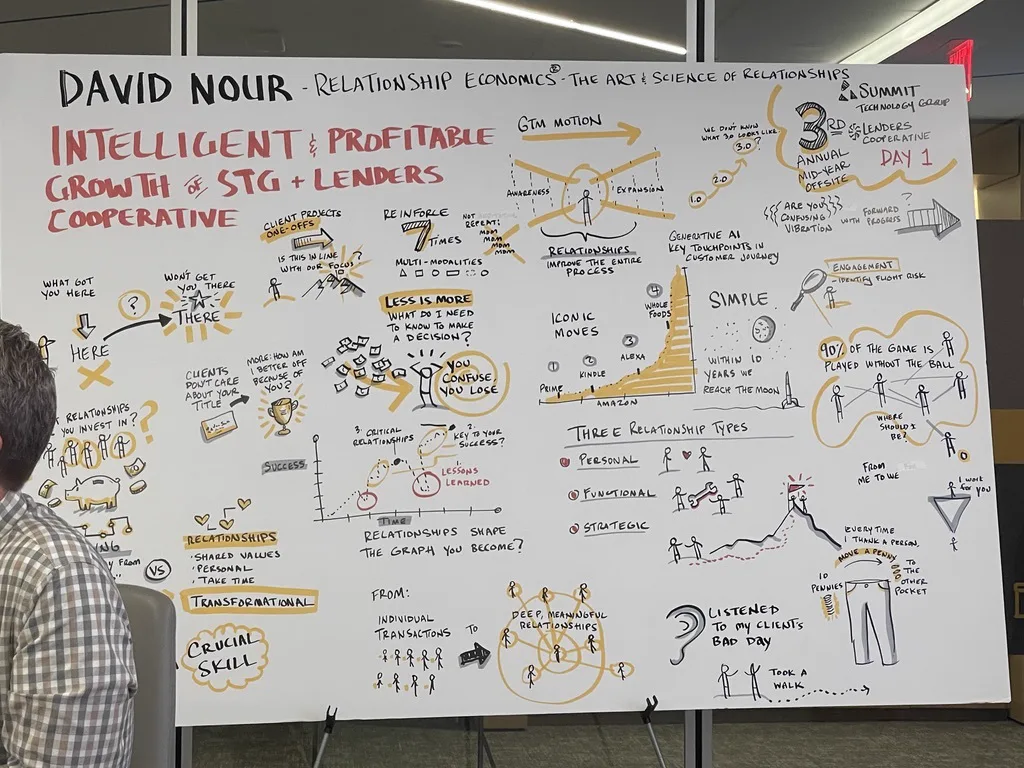 DAVID NOUR - RELATIONSHIP ECONOMICS® - THE ART & SCIENCE OF RELATIONSHIPS
SUMMIT
TECHNOLOGY GROUP
LENDERS
COOPERATIVE
DAY 1
3RD
ANNUAL
MID-YEAR
OFFSITE
INTELLIGENT & PROFITABLE
GROWTH OF STG + LENDERS
COOPERATIVE
GTM MOTION
AWARENESS
EXPANSION
RELATIONSHIPS
IMPROVE THE ENTIRE
PROCESS
WE DON'T KNOW
WHAT 3.0 LOOKS LIKE
1.0
2.0
3.0?
ARE YOU
CONFUSING
VIBRATION
WITH FORWARD
PROGRESS?
CLIENT PROJECTS
ONE-OFFS
IS THIS IN LINE
WITH OUR FOCUS?
REINFORCE
7
TIMES
NOT
REPEAT:
MOM
MOM
MOM
MOM
MULTI-MODALITIES
WHAT GOT
YOU HERE
HERE
?
WON'T GET
YOU THERE
THERE
LESS IS MORE
WHAT DO I NEED
TO KNOW TO MAKE
A DECISION?
YOU
CONFUSE,
YOU LOSE
GENERATIVE AI
KEY TOUCHPOINTS IN
CUSTOMER JOURNEY
ICONIC
MOVES
1
PRIME
2
KINDLE
3
ALEXA
4
WHOLE
FOODS
AMAZON
SIMPLE
WITHIN 10
YEARS WE
REACH THE MOON
ENGAGEMENT
- IDENTIFY FLIGHT RISK
90% OF THE GAME IS
PLAYED WITHOUT THE BALL
WHERE
SHOULD I
BE?
CLIENTS
DON'T CARE
ABOUT YOUR
TITLE
MORE: HOW AM
I BETTER OFF
BECAUSE OF
YOU?
RELATIONSHIPS
YOU INVEST IN?
??
3. CRITICAL
RELATIONSHIPS
2.
KEY TO YOUR
SUCCESS?
1.
LESSONS
LEARNED
SUCCESS
TIME
RELATIONSHIPS SHAPE
THE GRAPH YOU BECOME?
THREE RELATIONSHIP TYPES
PERSONAL
FUNCTIONAL
STRATEGIC
FROM
ME TO WE
I WORK
FOR YOU
VS
RELATIONSHIPS
· SHARED VALUES
· PERSONAL
· TAKE TIME
TRANSFORMATIONAL
CRUCIAL
SKILL
FROM:
INDIVIDUAL
TRANSACTIONS
TO
DEEP, MEANINGFUL
RELATIONSHIPS
LISTENED
TO MY CLIENTS
BAD DAY
TOOK A
WALK
EVERY TIME
I THANK A PERSON,
MOVE A PENNY
TO
THE
OTHER
POCKET
10
PENNIES